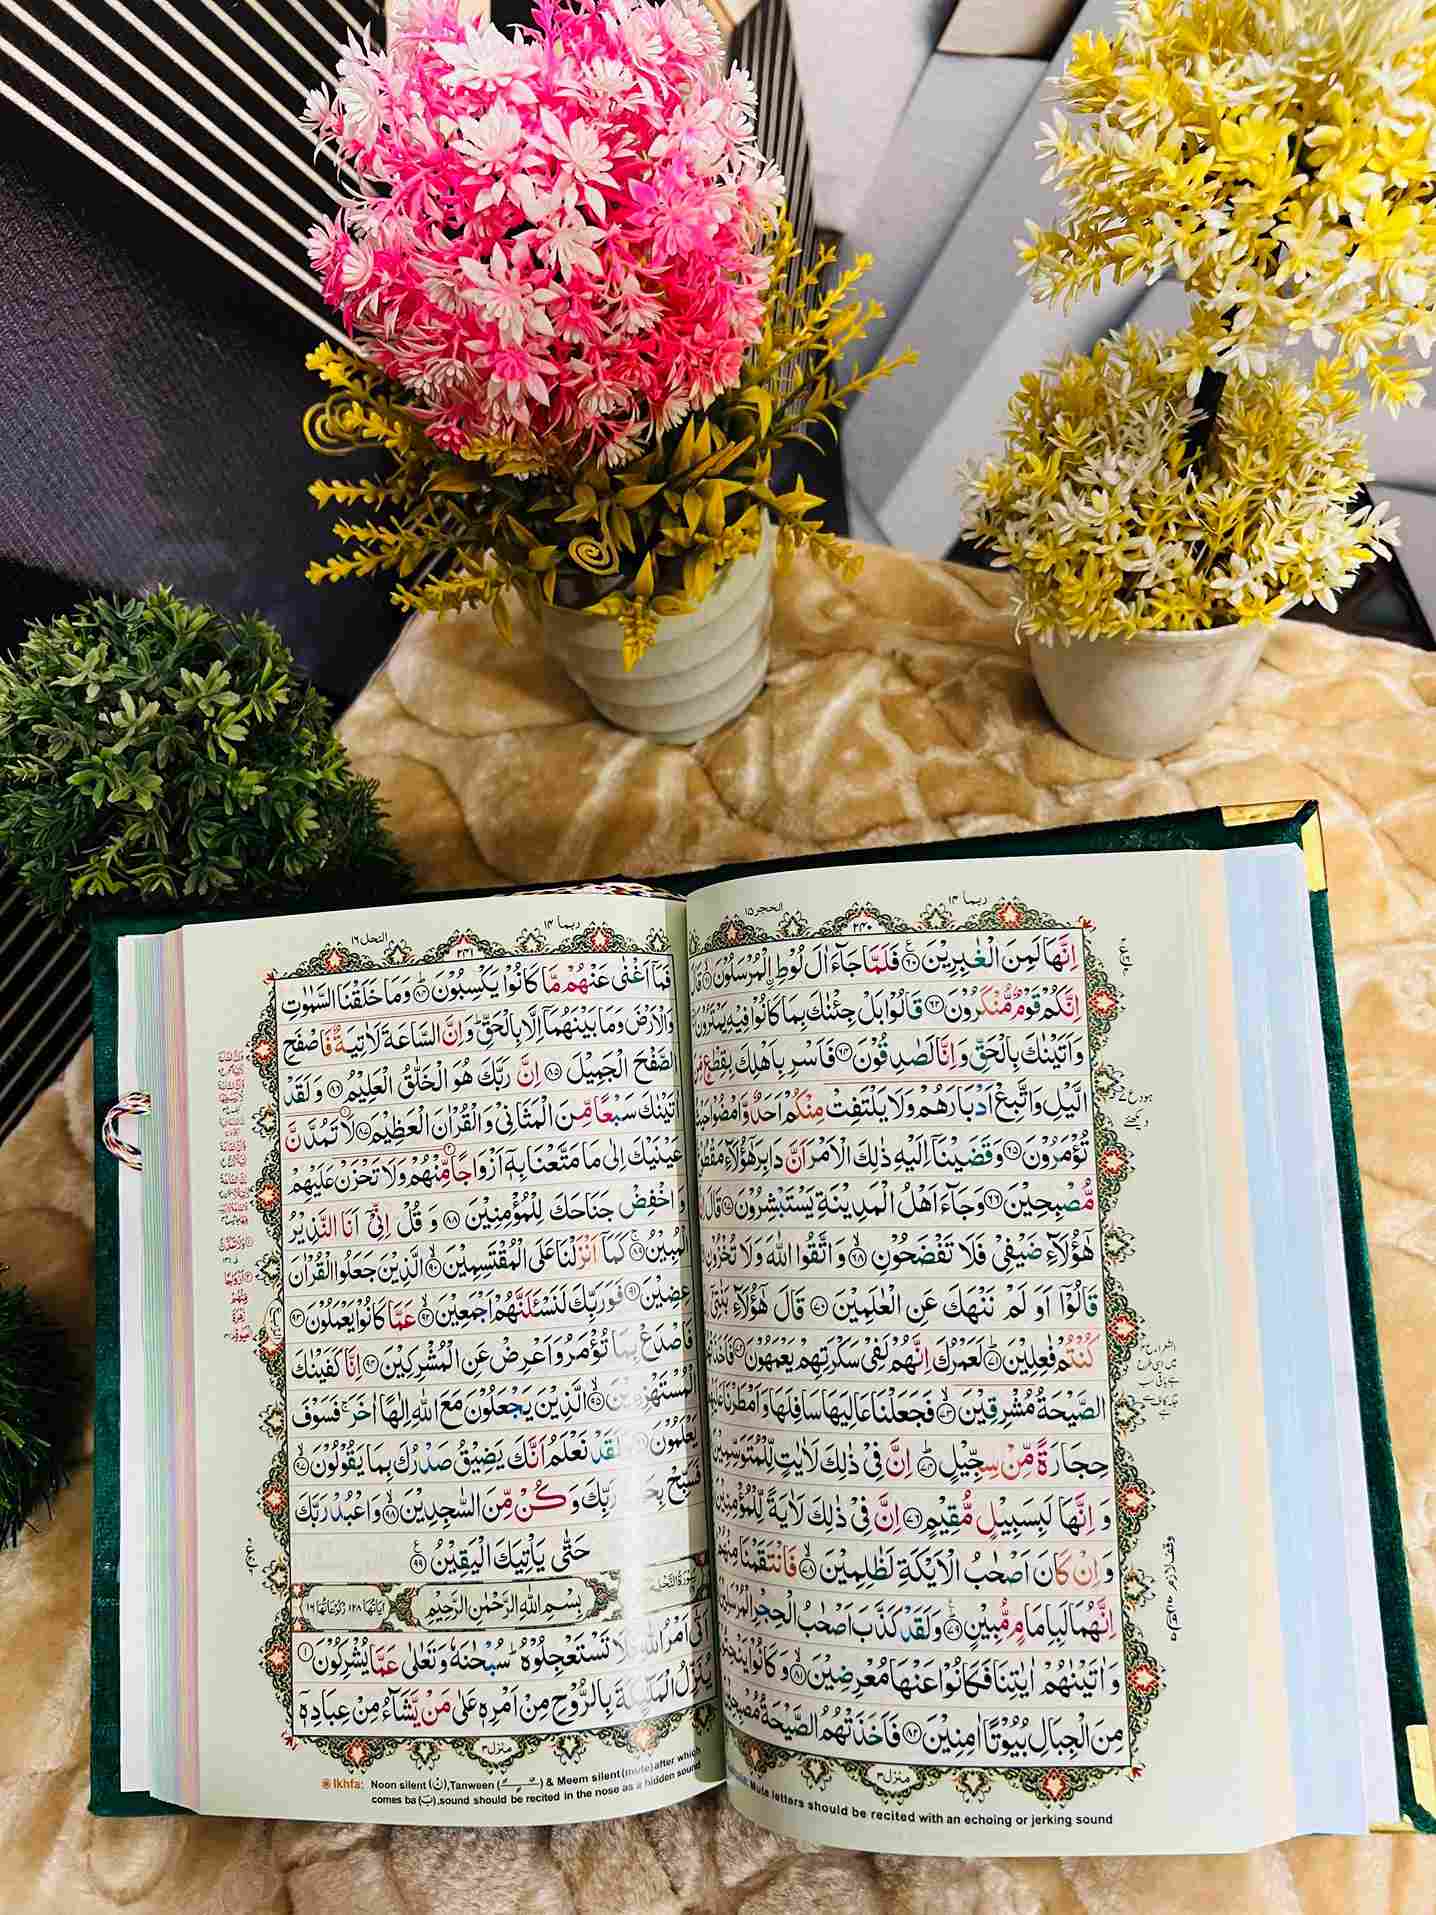 ربما ۱۴
۲۴۰
الحجر ۱۵
اِنَّهَا لَمِنَ الْغٰبِرِيْنَ ۶۰ فَلَمَّا جَآءَ اٰلَ لُوْطِ اِ۟لْمُرْسَلُوْنَ ۶۱ قَالَ
اِنَّكُمْ قَوْمٌ مُّنْكَرُوْنَ ۶۲ قَالُوْا بَلْ جِئْنٰكَ بِمَا كَانُوْا فِيْهِ يَمْتَرُوْنَ
وَاَتَيْنٰكَ بِالْحَقِّ وَاِنَّا لَصٰدِقُوْنَ ۶۴ فَاَسْرِ بِاَهْلِكَ بِقِطْعٍ مِّنَ
الَّيْلِ وَاتَّبِعْ اَدْبَارَهُمْ وَلَا يَلْتَفِتْ مِنْكُمْ اَحَدٌ وَّامْضُوْا حَيْثُ
تُؤْمَرُوْنَ ۶۵ وَقَضَيْنَاۤ اِلَيْهِ ذٰلِكَ الْاَمْرَ اَنَّ دَابِرَ هٰۤؤُلَآءِ
مُّصْبِحِيْنَ ۶۶ وَجَآءَ اَهْلُ الْمَدِيْنَةِ يَسْتَبْشِرُوْنَ ۶۷ قَالَ
هٰۤؤُلَآءِ ضَيْفِيْ فَلَا تَفْضَحُوْنِ ۶۸ وَاتَّقُوا اللّٰهَ وَلَا تُخْزُوْنِ
قَالُوْۤا اَوَلَمْ نَنْهَكَ عَنِ الْعٰلَمِيْنَ ۷۰ قَالَ هٰۤؤُلَآءِ بَنٰتِيْۤ
كُنْتُمْ فٰعِلِيْنَ ۷۱ لَعَمْرُكَ اِنَّهُمْ لَفِيْ سَكْرَتِهِمْ يَعْمَهُوْنَ ۷۲
الصَّيْحَةُ مُشْرِقِيْنَ ۷۳ فَجَعَلْنَا عَالِيَهَا سَافِلَهَا وَاَمْطَرْنَا عَلَيْهِمْ
حِجَارَةً مِّنْ سِجِّيْلٍ ۷۴ اِنَّ فِيْ ذٰلِكَ لَاٰيٰتٍ لِّلْمُتَوَسِّمِيْنَ
وَاِنَّهَا لَبِسَبِيْلٍ مُّقِيْمٍ ۷۶ اِنَّ فِيْ ذٰلِكَ لَاٰيَةً لِّلْمُؤْمِنِيْنَ
وَاِنْ كَانَ اَصْحٰبُ الْاَيْكَةِ لَظٰلِمِيْنَ ۷۸ فَانْتَقَمْنَا مِنْهُمْ
اِنَّهُمَا لَبِاِمَامٍ مُّبِيْنٍ ۷۹ وَلَقَدْ كَذَّبَ اَصْحٰبُ الْحِجْرِ الْمُرْسَلِيْنَ
وَاٰتَيْنٰهُمْ اٰيٰتِنَا فَكَانُوْا عَنْهَا مُعْرِضِيْنَ ۸۱ وَكَانُوْا يَنْحِتُوْنَ
مِنَ الْجِبَالِ بُيُوْتًا اٰمِنِيْنَ ۸۲ فَاَخَذَتْهُمُ الصَّيْحَةُ مُصْبِحِيْنَ
منزل ۳
Mute letters should be recited with an echoing or jerking sound
ربما ۱۴
۲۴۱
النحل ۱۶
فَمَاۤ اَغْنٰى عَنْهُمْ مَّا كَانُوْا يَكْسِبُوْنَ ۸۴ وَمَا خَلَقْنَا السَّمٰوٰتِ
وَالْاَرْضَ وَمَا بَيْنَهُمَاۤ اِلَّا بِالْحَقِّ وَاِنَّ السَّاعَةَ لَاٰتِيَةٌ فَاصْفَحِ
الصَّفْحَ الْجَمِيْلَ ۸۵ اِنَّ رَبَّكَ هُوَ الْخَلّٰقُ الْعَلِيْمُ ۸۶ وَلَقَدْ
اٰتَيْنٰكَ سَبْعًا مِّنَ الْمَثَانِيْ وَالْقُرْاٰنَ الْعَظِيْمَ ۸۷ لَا تَمُدَّنَّ
عَيْنَيْكَ اِلٰى مَا مَتَّعْنَا بِهٖۤ اَزْوَاجًا مِّنْهُمْ وَلَا تَحْزَنْ عَلَيْهِمْ
وَاخْفِضْ جَنَاحَكَ لِلْمُؤْمِنِيْنَ ۸۸ وَقُلْ اِنِّيْۤ اَنَا النَّذِيْرُ
الْمُبِيْنُ ۸۹ كَمَاۤ اَنْزَلْنَا عَلَى الْمُقْتَسِمِيْنَ ۹۰ الَّذِيْنَ جَعَلُوا الْقُرْاٰنَ
عِضِيْنَ ۹۱ فَوَرَبِّكَ لَنَسْـَٔلَنَّهُمْ اَجْمَعِيْنَ ۹۲ عَمَّا كَانُوْا يَعْمَلُوْنَ ۹۳
فَاصْدَعْ بِمَا تُؤْمَرُ وَاَعْرِضْ عَنِ الْمُشْرِكِيْنَ ۹۴ اِنَّا كَفَيْنٰكَ
الْمُسْتَهْزِءِيْنَ ۹۵ الَّذِيْنَ يَجْعَلُوْنَ مَعَ اللّٰهِ اِلٰهًا اٰخَرَ فَسَوْفَ
يَعْلَمُوْنَ ۹۶ وَلَقَدْ نَعْلَمُ اَنَّكَ يَضِيْقُ صَدْرُكَ بِمَا يَقُوْلُوْنَ ۹۷
فَسَبِّحْ بِحَمْدِ رَبِّكَ وَكُنْ مِّنَ السّٰجِدِيْنَ ۹۸ وَاعْبُدْ رَبَّكَ
حَتّٰى يَاْتِيَكَ الْيَقِيْنُ ۹۹
بِسْمِ اللّٰهِ الرَّحْمٰنِ الرَّحِيْمِ
اٰيَاتُهَا ۱۲۸ رُكُوْعَاتُهَا ۱۶
اَتٰۤى اَمْرُ اللّٰهِ فَلَا تَسْتَعْجِلُوْهُ سُبْحٰنَهٗ وَتَعٰلٰى عَمَّا يُشْرِكُوْنَ ۱
يُنَزِّلُ الْمَلٰٓئِكَةَ بِالرُّوْحِ مِنْ اَمْرِهٖ عَلٰى مَنْ يَّشَآءُ مِنْ عِبَادِهٖۤ
منزل ۳
Ikhfa: Noon silent (نْ),Tanween ( ) & Meem silent (mute) after which
comes ba (ب), sound should be recited in the nose as a hidden sound